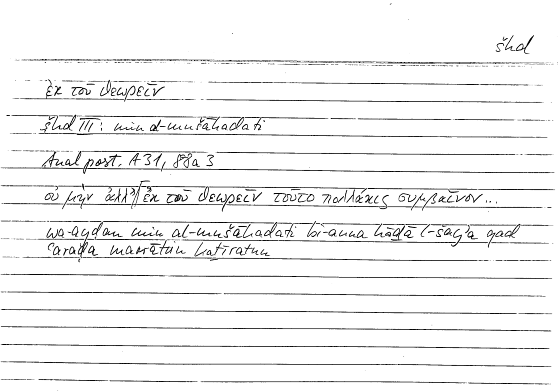 šhd
ἐκ τοῦ θεωρεῖν
šhd III: min al-mušāhadati
Anal. post. A 31, 88a 3
οὐ μὴν ἀλλ' ἐκ τοῦ θεωρεῖν τοῦτο πολλάκις συμβαῖνον...
wa-ayḍan min al-mušāhadati bi-anna hāḏā l-šayʾa qad
ʿaraḍa marrātin kaṯīratan